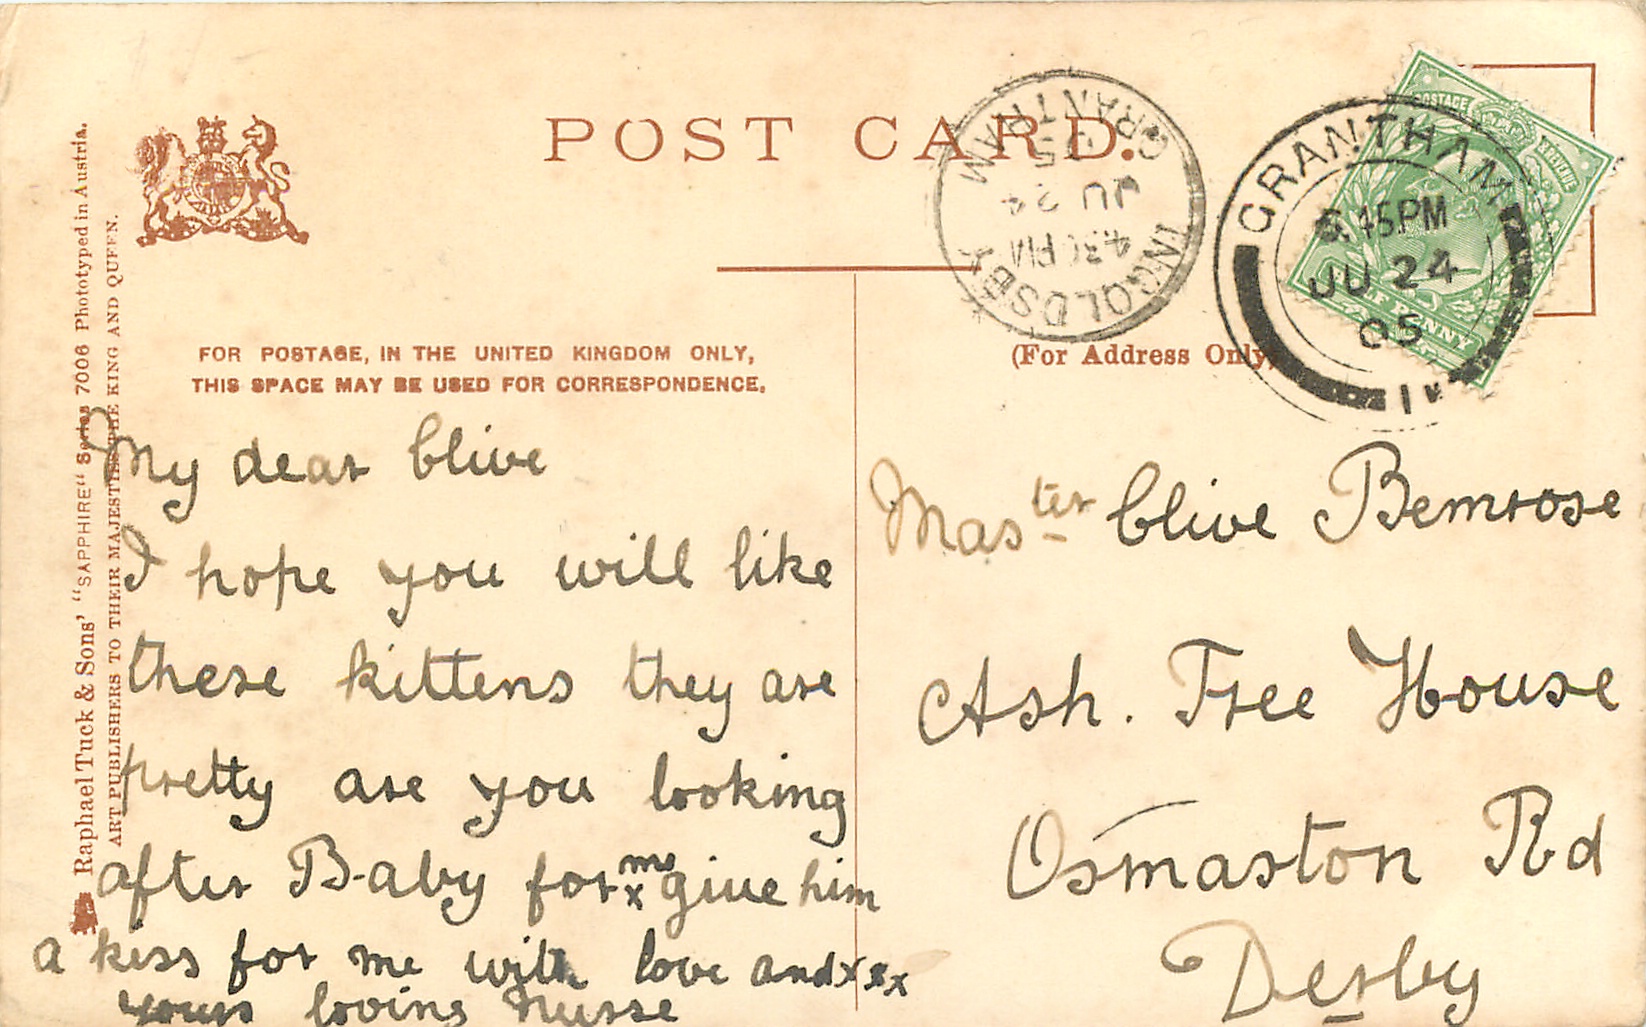 POST CARD.
GRANTHAM
5.45PM
JU 24
05
INGOLDSBY
GRANTHAM
4.30PM
JU 24
05
POSTAGE
REVENUE
HALF PENNY
FOR POSTAGE, IN THE UNITED KINGDOM ONLY,
THIS SPACE MAY BE USED FOR CORRESPONDENCE.
(For Address Only)
Raphael Tuck & Sons' "SAPPHIRE" Series 7006 Phototyped in Austria.
ART PUBLISHERS TO THEIR MAJESTIES THE KING AND QUEEN.
My dear Clive
I hope you will like
these kittens they are
pretty are you looking
after Baby for me x give him
a kiss for me with love and xxx
yours loving Nurse
Master Clive Bemrose
Ash. Tree House
Osmaston Rd
Derby